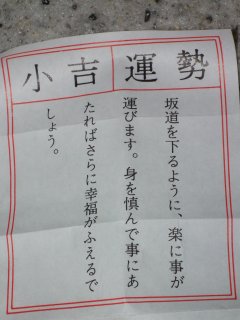 運勢
小吉
坂道を下るように、楽に事が
運びます。身を慎んで事にあ
たればさらに幸福がふえるで
しょう。